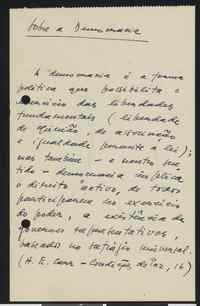 Sobre a Democracia
A democracia é a forma
política que possibilita o
exercício das liberdades
fundamentais (liberdade
de opinião, de associação
e igualdade perante a lei);
mas também - o mesmo
- democracia implica
o direito activo, de todos
participarem no exercício
do poder, a existência de
governos representativos,
baseados no sufrágio universal.
(H. E. Carr - Condições da Paz, 16)